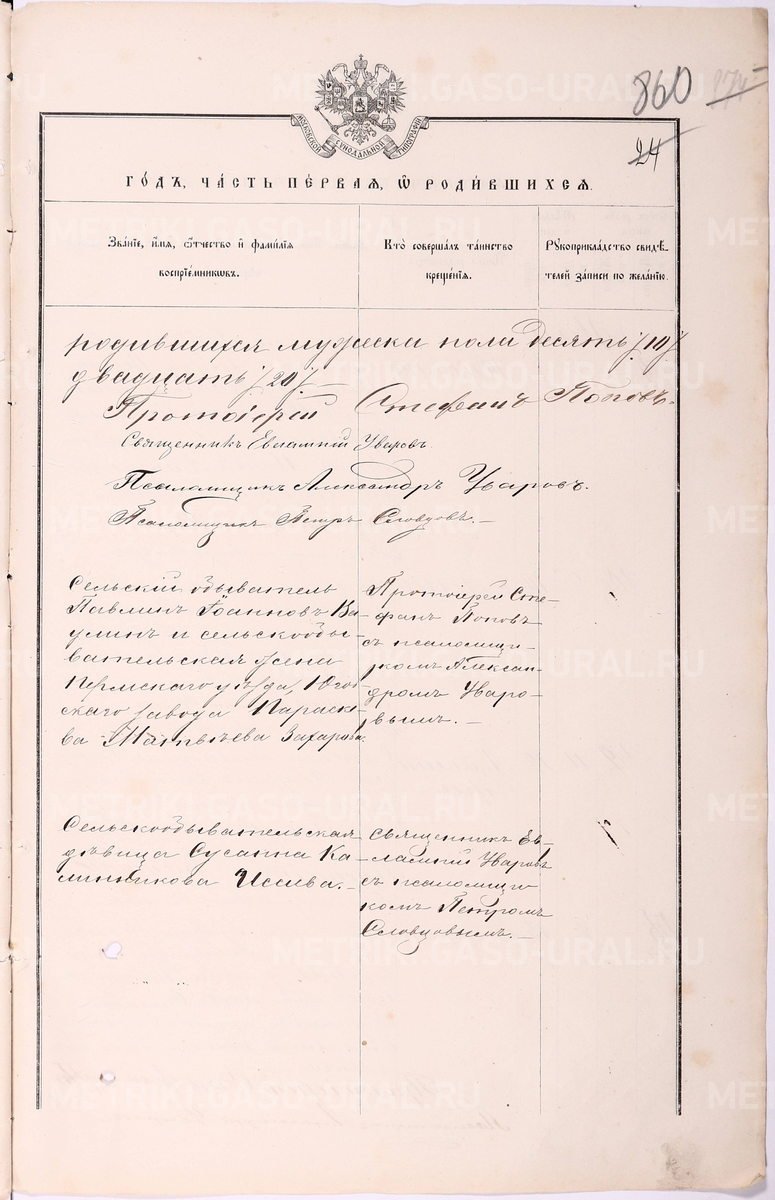 860
24
МОСКОВСКОЙ СѴНОДАЛЬНОЙ ТИПОГРАФІИ
ГО́ДЪ, ЧА́СТЬ ПЕ́РВАЯ, Ѡ РОДИ́ВШИХСЯ.
Зва́нїе, и́мя, ѻ́тчество и҆ фами́лїя
воспрїе́мникѡвъ.
Кто̀ соверша́лъ та́инство
креще́нїя.
Рꙋкоприкла́дство свидѣ́-
телей за́писи по жела́нїю.
родившихся мужески пола десять /10/
двадцать /20/ —
Протоіерей Стефанъ Поповъ.
Священникъ Евлампій Уваровъ
Псаломщикъ Александръ Уваровъ.
Псаломщикъ Петръ Словцовъ. —
Сельскій обыватель
Павлинъ Іоанновъ Ва-
улинъ и сельскообы-
вательская жена
Пермскаго уѣзда, Югов-
скаго завода Параске-
ва Матвѣева Захарова.
Протоіерей Сте-
фанъ Поповъ
съ псаломщи-
комъ Алексан-
дромъ Уваро-
вымъ. —
Сельскообывательская
дѣвица Сусанна Ка-
линникова Исаева. —
Священникъ Ев-
лампій Уваровъ
съ псаломщи-
комъ Петромъ
Словцовымъ. —
METRIKI.GASO-URAL.RU